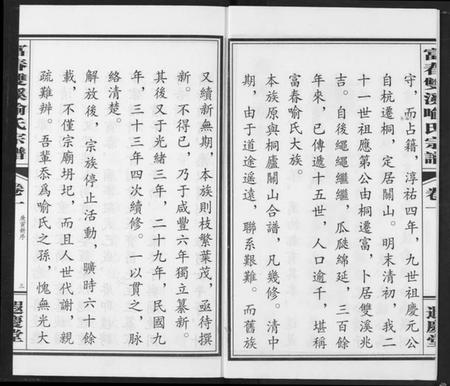 富春雙溪喻氏宗譜
卷一
遐慶堂
守，而占籍，淳祐四年，九世祖慶元公
自杭遷桐，定居關山。明末清初，我二
十一世祖應第公由桐遷富，卜居雙溪兆
吉。自後繩繩繼繼，瓜瓞綿延，三百餘
年來，已傳遞十五世，人口逾千，堪稱
富春喻氏大族。
本族原與桐廬關山合譜，凡幾修。清中
期，由于道途遙遠，聯系艱難。而舊族
又續新無期，本族則枝繁葉茂，亟待撰
新。不得已，乃于咸豐六年獨立纂新。
其後又于光緒三年，二十九年，民國九
年，三十三年四次續修。一以貫之，脉
絡清楚。
解放後，宗族停止活動，曠時六十餘
載，不僅宗廟坍圮，而且人世代謝，親
疏難辨。吾輩忝爲喻氏之孫，愧無光大
富春雙溪喻氏宗譜
卷一
庚寅新序
三
遐慶堂